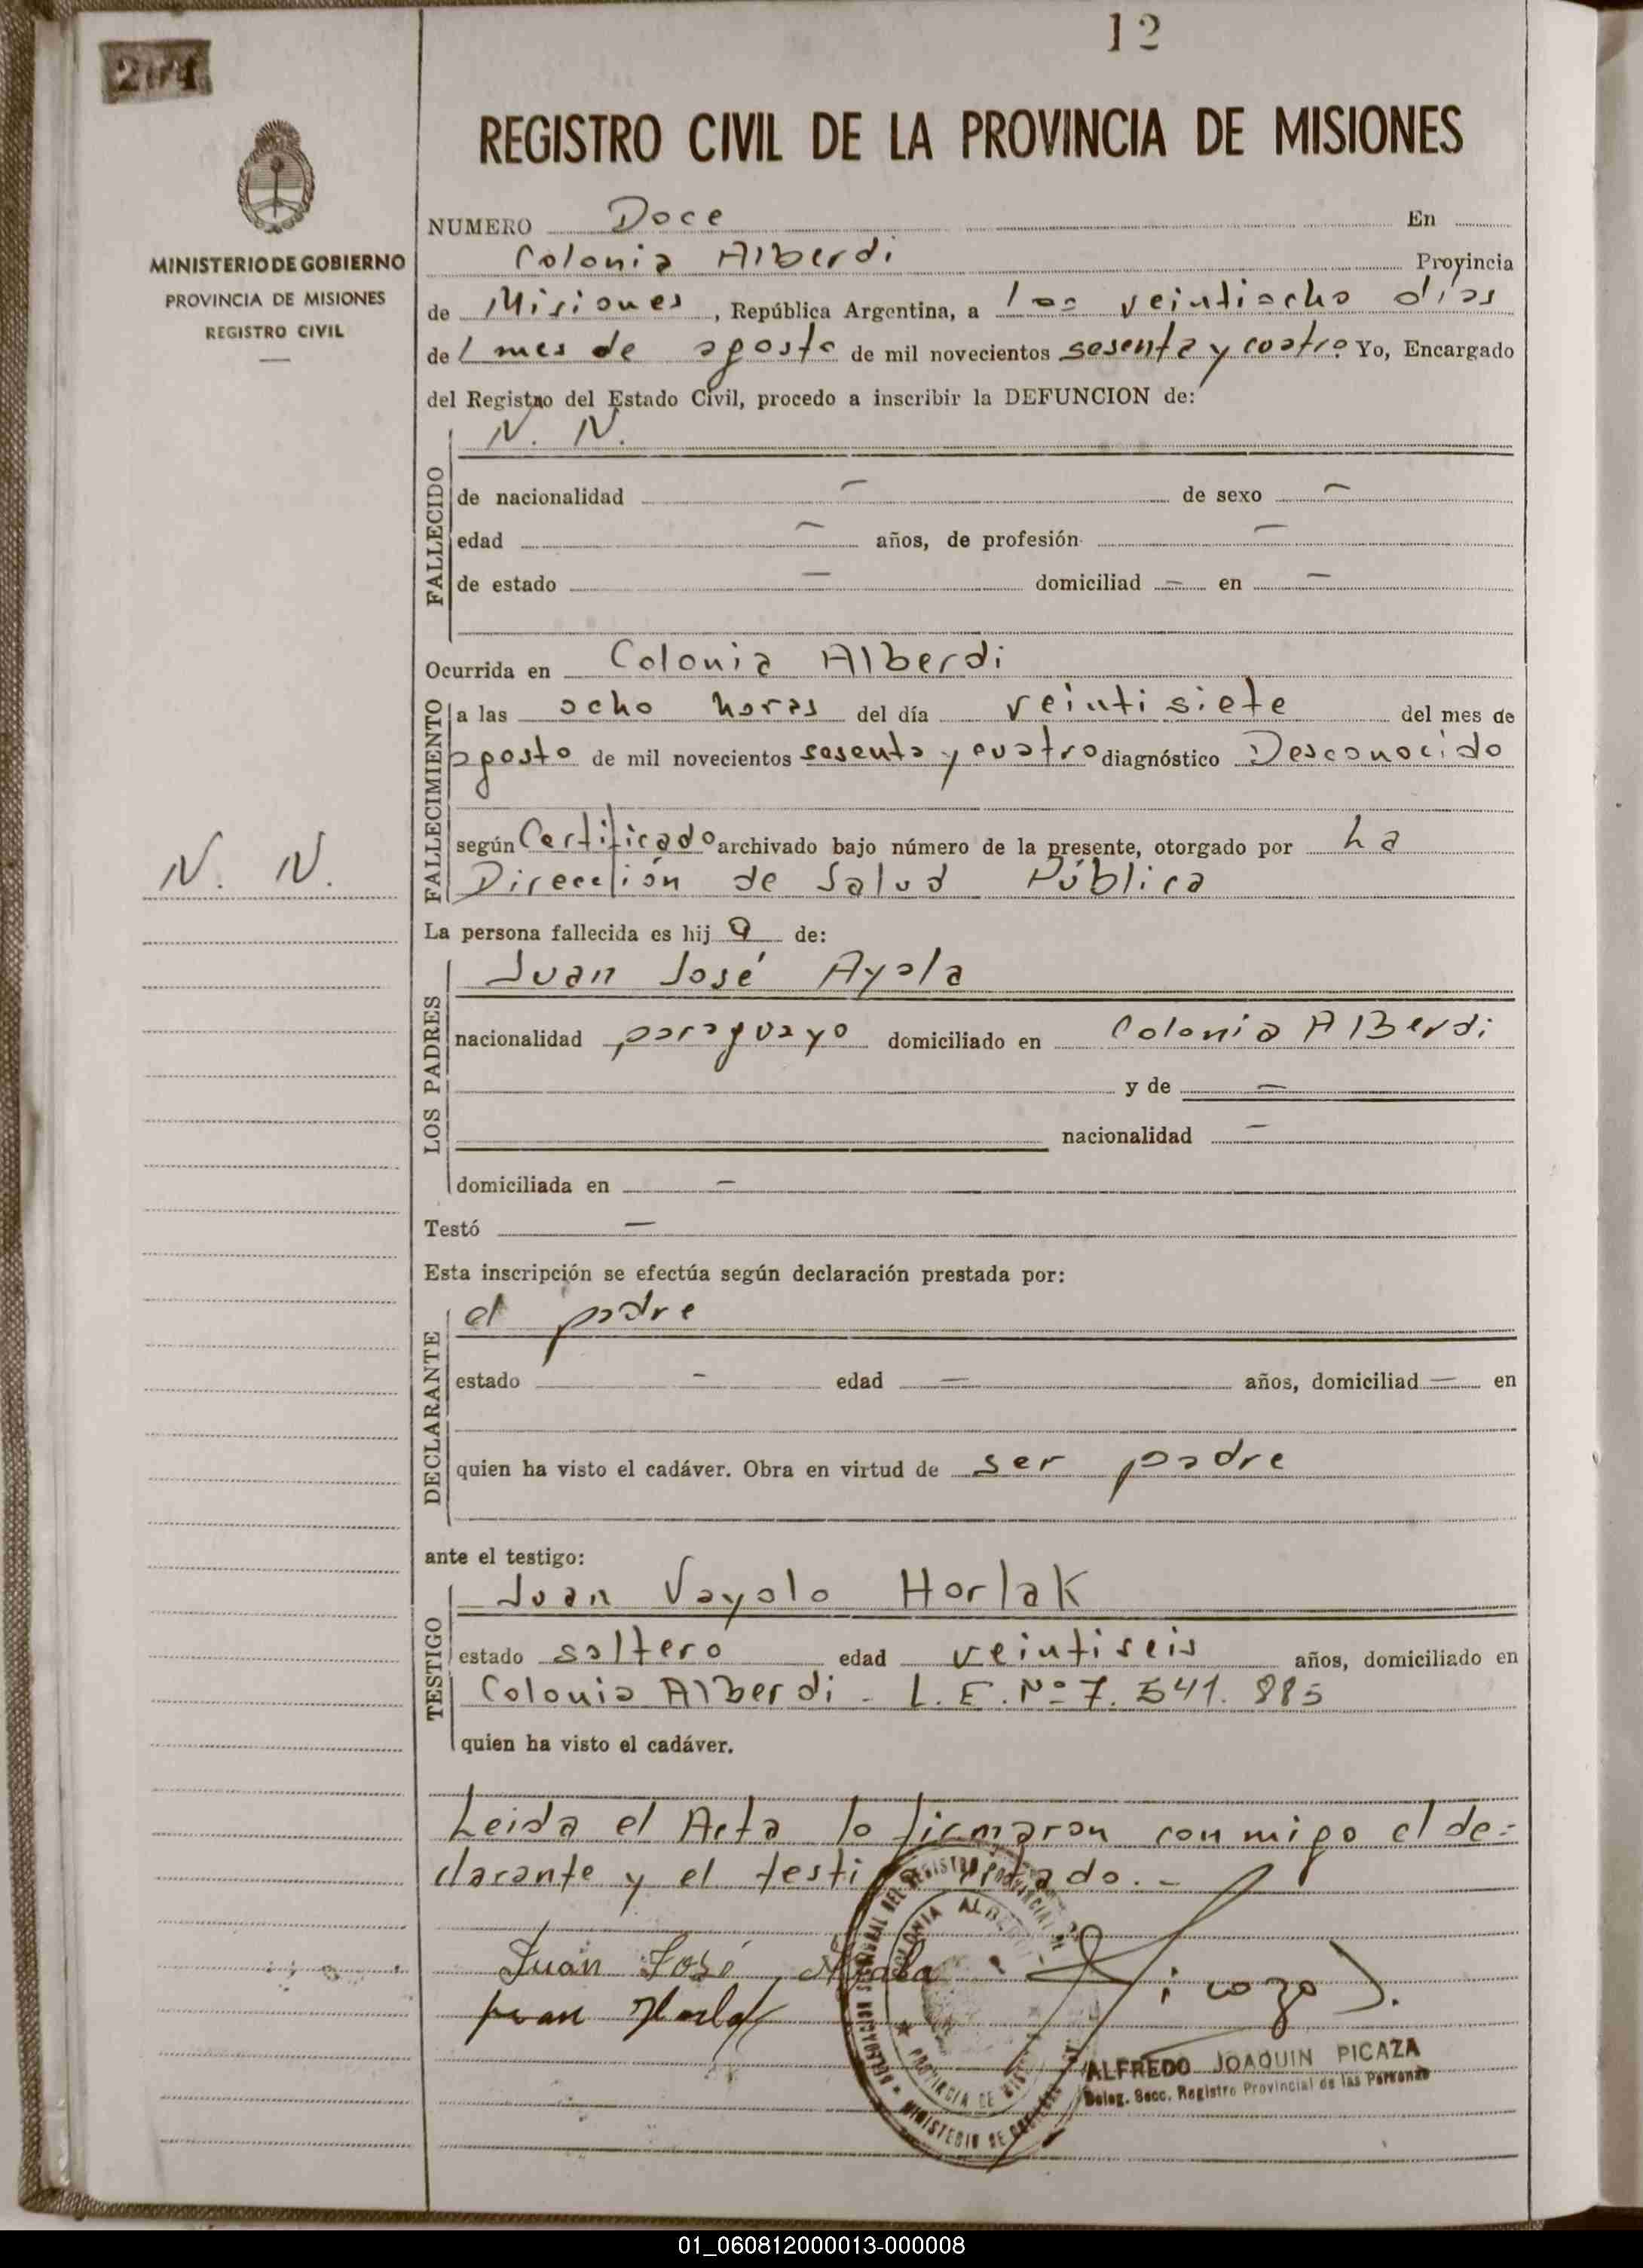 12
204
REGISTRO CIVIL DE LA PROVINCIA DE MISIONES
MINISTERIO DE GOBIERNO
PROVINCIA DE MISIONES
REGISTRO CIVIL
NUMERO Doce En
Colonia Alberdi Provincia
de Misiones, República Argentina, a los veintiocho días
del mes de agosto de mil novecientos sesenta y cuatro Yo, Encargado
del Registro del Estado Civil, procedo a inscribir la DEFUNCION de:
N. N.
FALLECIDO
de nacionalidad — de sexo —
edad — años, de profesión —
de estado — domiciliad — en —
Ocurrida en Colonia Alberdi
FALLECIMIENTO
a las ocho horas del día veintisiete del mes de
agosto de mil novecientos sesenta y cuatro diagnóstico Desconocido
según Certificado archivado bajo número de la presente, otorgado por La
Dirección de Salud Pública
N. N.
La persona fallecida es hij a de:
LOS PADRES
Juan José Ayala
nacionalidad paraguayo domiciliado en Colonia Alberdi
y de —
nacionalidad —
domiciliada en —
Testó —
Esta inscripción se efectúa según declaración prestada por:
DECLARANTE
el padre
estado — edad — años, domiciliad — en
quien ha visto el cadáver. Obra en virtud de ser padre
ante el testigo:
TESTIGO
Juan Vayolo Horlak
estado soltero edad veintiseis años, domiciliado en
Colonia Alberdi - L. E. Nº 7. 541. 885
quien ha visto el cadáver.
Leida el Acta lo firmaron conmigo el de-
clarante y el testigo citado.-
Juan José Ayala
Juan Horlak
COLONIA ALBERDI
PROVINCIA DE MISIONES
MINISTERIO DE GOBIERNO
Picaza J.
ALFREDO JOAQUIN PICAZA
Deleg. Secc. Registro Provincial de las Personas
01_060812000013-000008